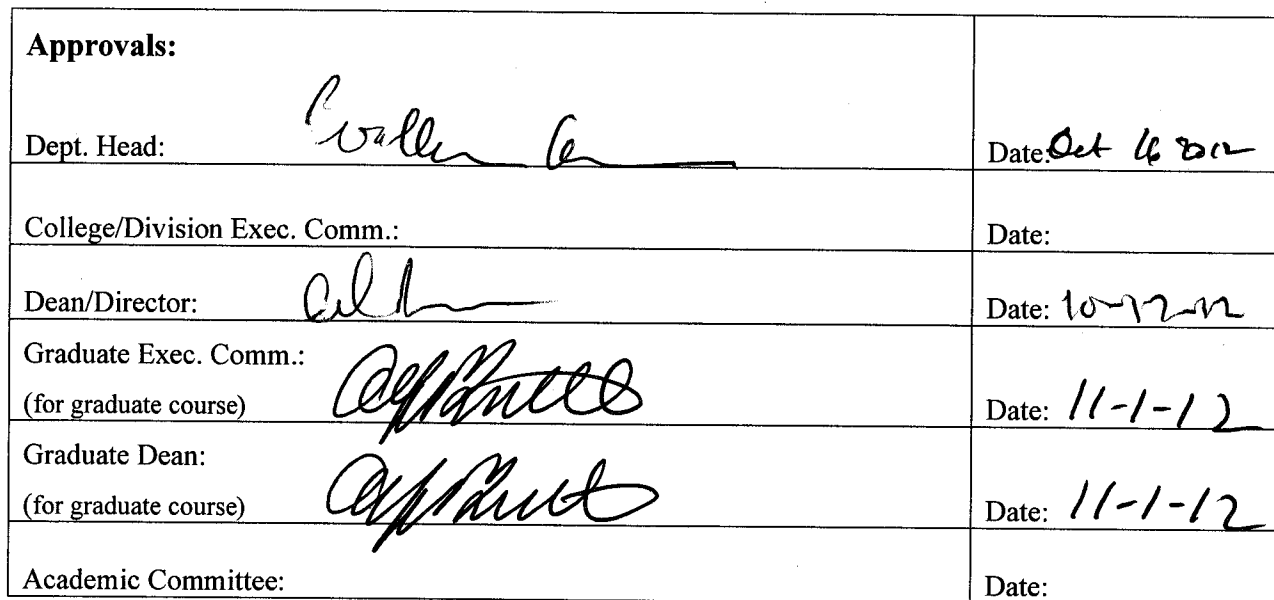 Approvals:
Dept. Head:
Date: Oct 2012
College/Division Exec. Comm.:
Date:
Dean/Director:
Date: 10-12-12
Graduate Exec. Comm.:
(for graduate course)
Date: 11-1-12
Graduate Dean:
(for graduate course)
Date: 11-1-12
Academic Committee:
Date: